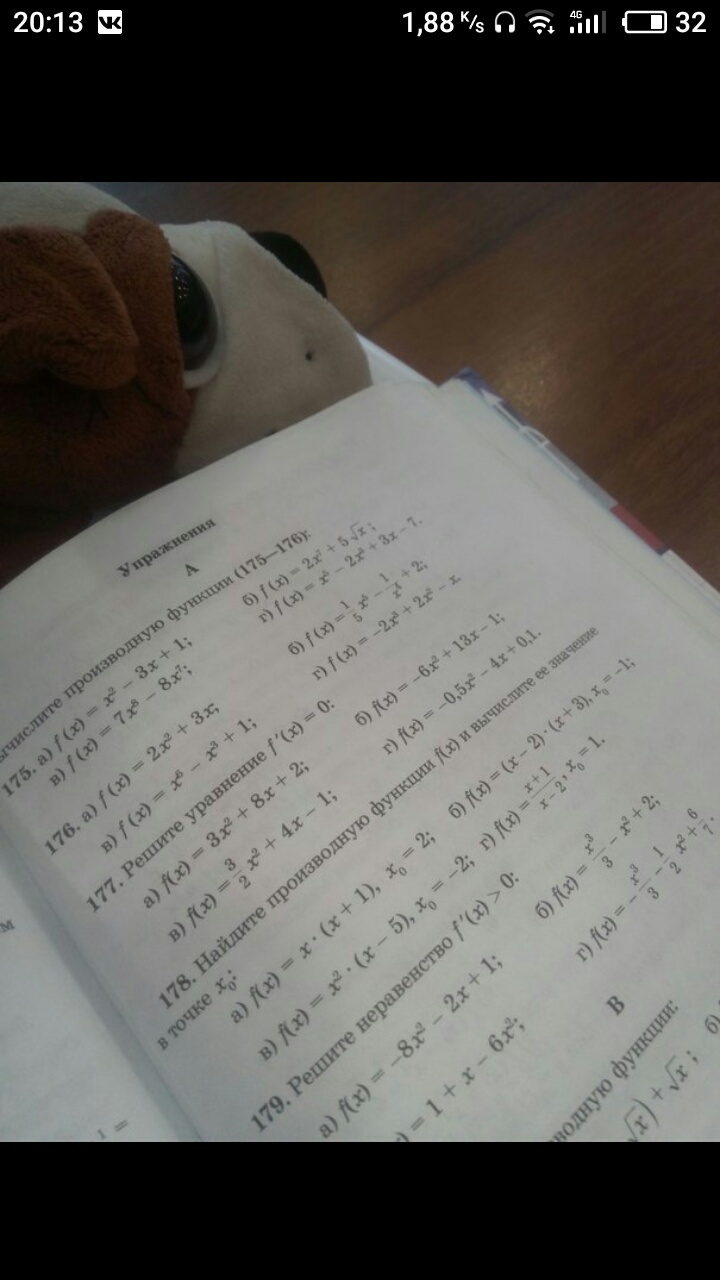 20:13
1,88 K/s 4G 32
Упражнения
А
числите производную функции (175—176):
175. а) f(x) = x² − 3x + 1; б) f(x) = 2x⁷ + 5√x;
в) f(x) = 7x⁸ − 8x⁷; г) f(x) = x⁵ − 2x³ + 3x − 7.
176. а) f(x) = 2x² + 3x; б) f(x) = 1/5 x⁵ − 1/x⁴ + 2;
в) f(x) = x⁶ − x³ + 1; г) f(x) = −2x³ + 2x² − x.
177. Решите уравнение f′(x) = 0:
а) f(x) = 3x² + 8x + 2; б) f(x) = −6x² + 13x − 1;
в) f(x) = 3/2 x² + 4x − 1; г) f(x) = −0,5x² − 4x + 0,1.
178. Найдите производную функции f(x) и вычислите ее значение
в точке x₀:
а) f(x) = x · (x + 1), x₀ = 2; б) f(x) = (x − 2) · (x + 3), x₀ = −1;
в) f(x) = x² · (x − 5), x₀ = −2; г) f(x) = x + 1/x − 2, x₀ = 1.
179. Решите неравенство f′(x) > 0:
а) f(x) = −8x² − 2x + 1; б) f(x) = x³/3 − x² + 2;
) = 1 + x − 6x²; г) f(x) = −x³/3 − 1/2 x² + 6/7.
В
водную функции:
√x) + √x; б)
м
1 =